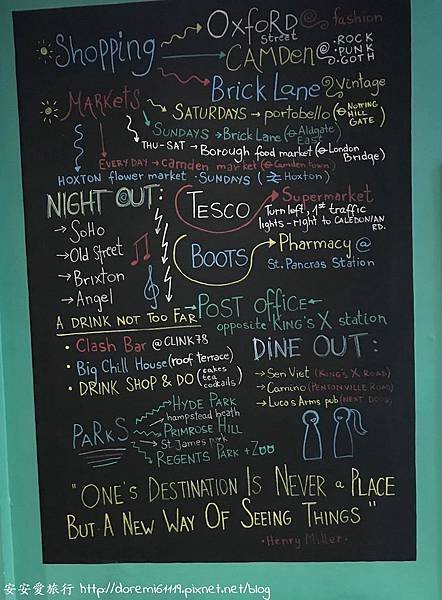 Shopping
OXFORD Street @ fashion
CAMDEN @ .ROCK .PUNK .GOTH
BRICK LANE @ Vintage
MARKETS
SATURDAYS → portobello (⊖ NOTTING HILL GATE)
SUNDAYS → Brick Lane (⊖ Aldgate East)
THU-SAT → Borough food market (⊖ London Bridge)
EVERY DAY → camden market (⊖ Camden town)
HOXTON flower market · SUNDAYS ( Hoxton)
NIGHT OUT:
→ SOHO
→ Old Street
→ Brixton
→ Angel
TESCO
Supermarket
Turn left, 1st traffic
lights - right to CALEDONIAN RD.
BOOTS
Pharmacy @
St. Pancras Station
POST OFFICE
opposite KING'S X station
A DRINK NOT TOO FAR
• Clash Bar @CLINK78
• Big Chill House (roof terrace)
• DRINK SHOP & DO (cakes tea cocktails)
DINE OUT:
→ Sen Viet (KING'S X ROAD)
→ Camino (PENTONVILLE ROAD)
→ Lucas Arms pub (NEXT DOOR)
PARKS
HYDE PARK
hampstead heath
PRIMROSE HILL
St James park
REGENTS PARK + Zoo
"ONE'S DESTINATION IS NEVER a PLACE
BUT A NEW WAY OF SEEING THINGS"
·Henry Miller·
安安愛旅行 http://doremi61119.pixnet.net/blog